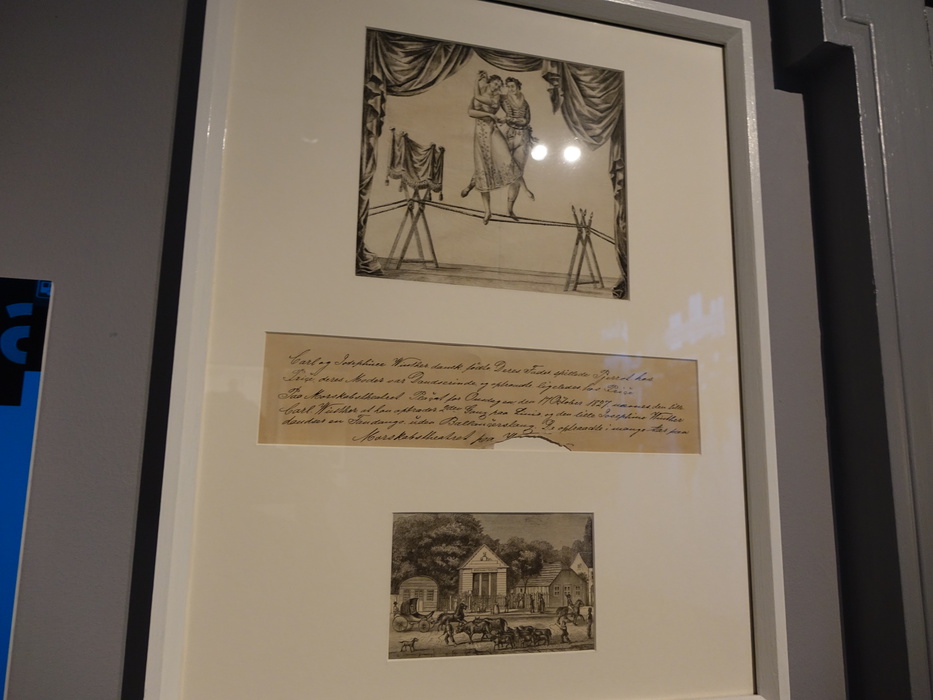 Carl og Josephine Winther dansk fødte Deres Fader spillede Pjerrot hos
Price deres Moder var Danserinde og optraadte ligeledes hos Price
Paa Morskabstheatret for Onsdagen den 17 October 1827 nævnes den lille
Carl Winther at han optræder paa Linie og den lille Josephine Winther
dandser en Fandango uden Ballancerstang. De optraadte i mange Aar paa
Morskabstheatret paa